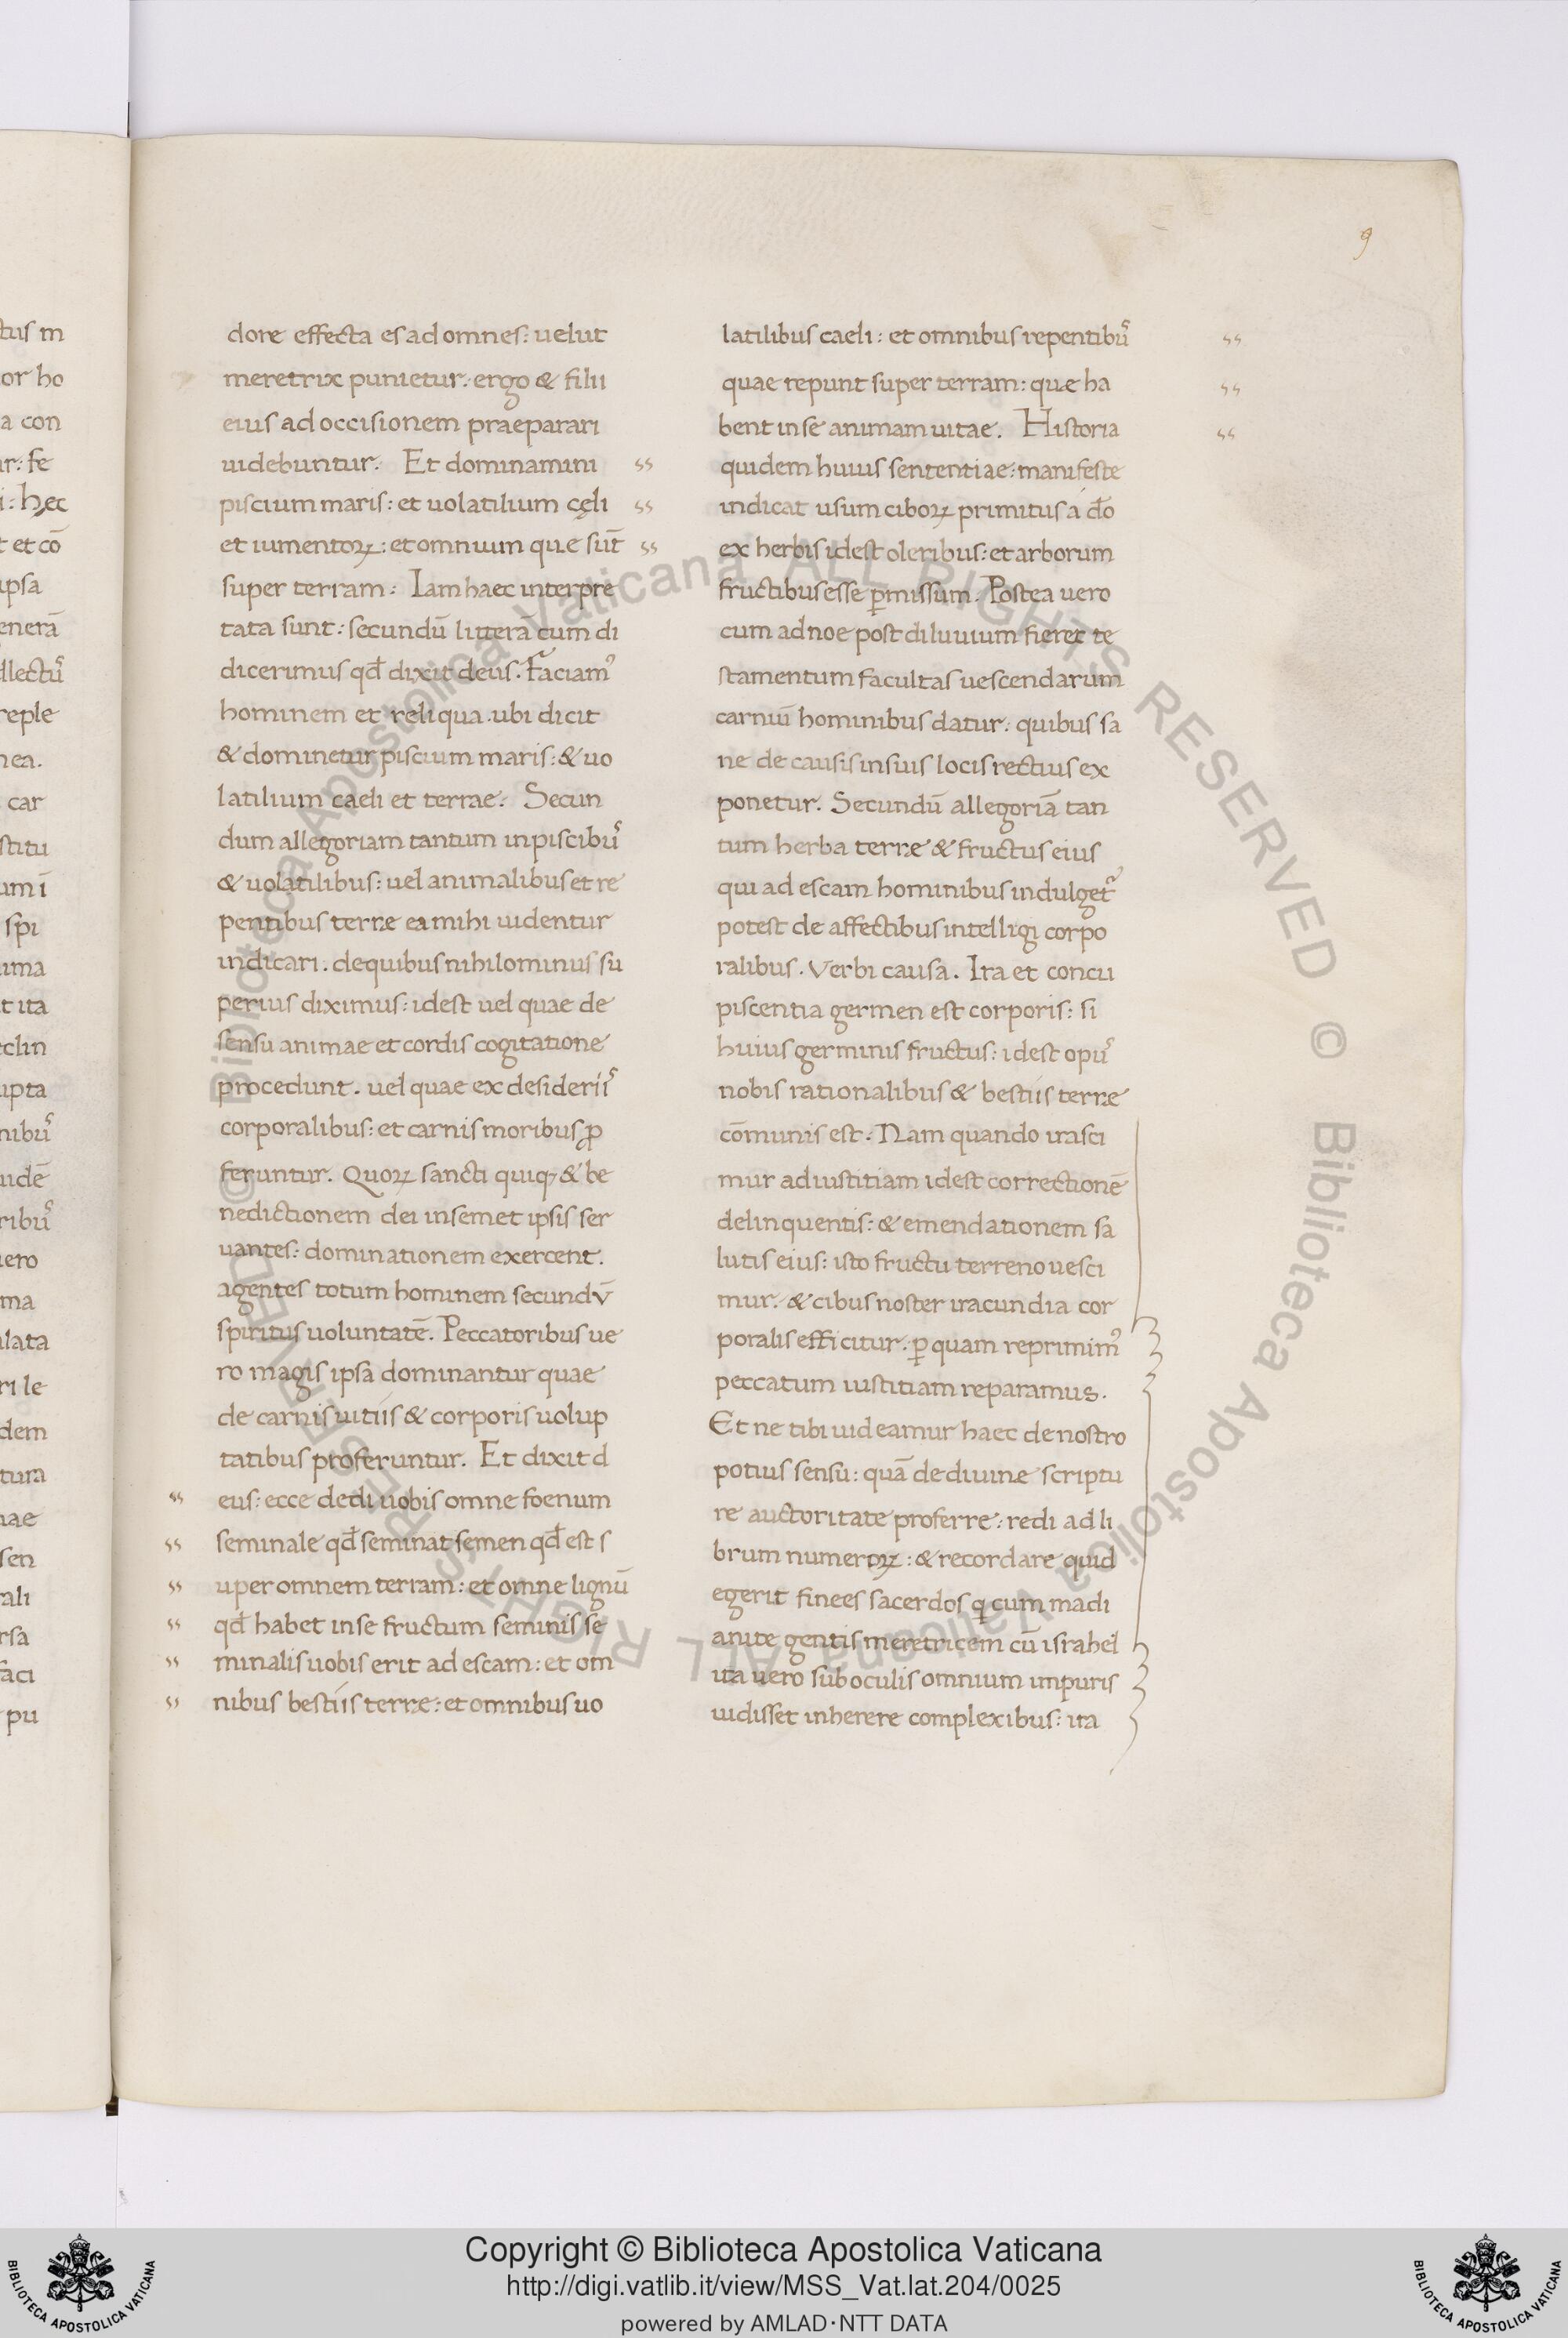 9
dore effecta es ad omnes: uelut
meretrix punietur: ergo & filii
eius ad occisionem praeparari
uidebuntur: Et dominamini
piscium maris: et uolatilium cęli
et iumentoꝝ: et omnium que sūt
super terram: Iam haec interpre
tata sunt: secundū litterā cum di
diceremus qđ dixit deus. Faciam᾿
hominem et reliqua. ubi dicit
& dominetur piscium maris: & uo
latilium caeli et terrae. Secun
dum allegoriam tantum in piscibu᾿
& uolatilibus: uel animalibus et re
pentibus terræ ea mihi uidentur
indicari. de quibus nihilominus su
perius diximus: idest uel quae de
sensu animae et cordis cogitatione
procedunt. uel quae ex desiderii᾿
corporalibus: et carnis moribus ꝓ
feruntur. Quoꝝ sancti quiq; & be
nedictionem dei in semet ipsis ser
uantes: dominationem exercent.
agentes totum hominem secundū
spiritus uoluntatē. Peccatoribus ue
ro magis ipsa dominantur quae
de carnis uitiis & corporis uolup
tatibus proferuntur. Et dixit d
eus: ecce dedi uobis omne foenum
seminale qđ seminat semen qđ est s
uper omnem terram: et omne lignū
qđ habet in se fructum seminis se
minalis uobis erit ad escam: et om
nibus bestiis terræ: et omnibus uo
latilibus caeli: et omnibus repentibu᾿
quae repunt super terram: que ha
bent in se animam uitae. Historia
quidem huius sententiae: manifeste
indicat usum ciboꝝ primitus á dō
ex herbis idest oleribus: et arborum
fructibus esse ꝑmissum. Postea uero
cum ad noe post diluuium fieret te
stamentum facultas uescendarum
carniū hominibus datur: quibus sa
ne de causis in suis locis rectius ex
ponetur. Secundū allegoriā tan
tum herba terræ & fructus eius
qui ad escam hominibus indulget᾿
potest de affectibus intelligi corpo
ralibus. Verbi causa. Ira et concu
piscentia germen est corporis: si
huius germinis fructus: idest opu᾿
nobis rationalibus & bestiis terræ
cōmunis est. Nam quando irasci
mur ad iustitiam idest correctionē
delinquentis: & emendationem sa
lutis eius: isto fructu terreno uesci
mur. & cibus noster iracundia cor
poralis efficitur: ꝑ quam reprimim᾿
peccatum iustitiam reparamus.
Et ne tibi uideamur haec de nostro
potius sensu: quā de diuinæ scriptu
re auctoritate proferre: redi ad li
brum numeroꝝ: & recordare quid
egerit finees sacerdos q cum madi
anite gentis meretricem cū israhel
ita uero sub oculis omnium impuris
uidisset inherere complexibus: ita
Copyright © Biblioteca Apostolica Vaticana
http://digi.vatlib.it/view/MSS_Vat.lat.204/0025
powered by AMLAD·NTT DATA